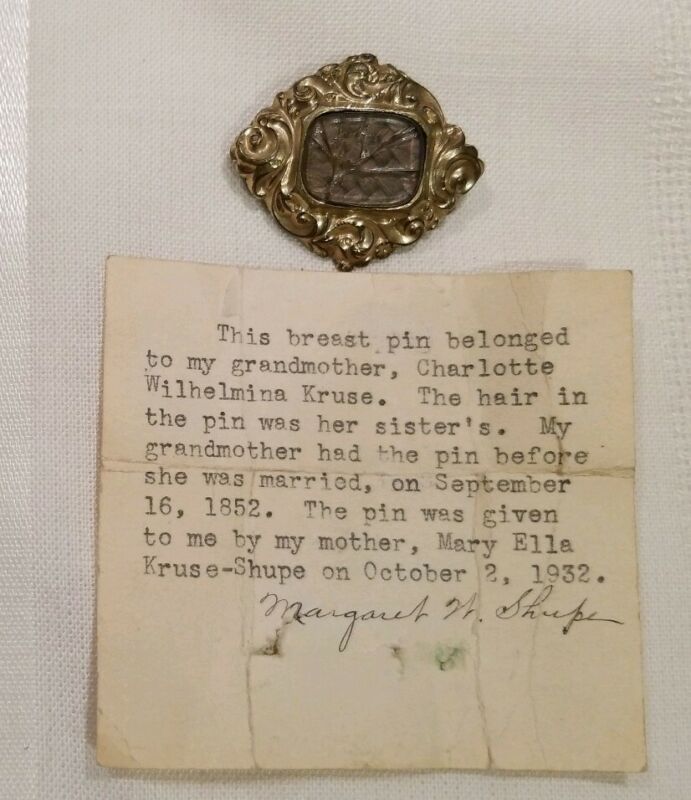 This breast pin belonged
to my grandmother, Charlotte
Wilhelmina Kruse. The hair in
the pin was her sister's. My
grandmother had the pin before
she was married, on September
16, 1852. The pin was given
to me by my mother, Mary Ella
Kruse-Shupe on October 2, 1932.
Margaret W. Shupe